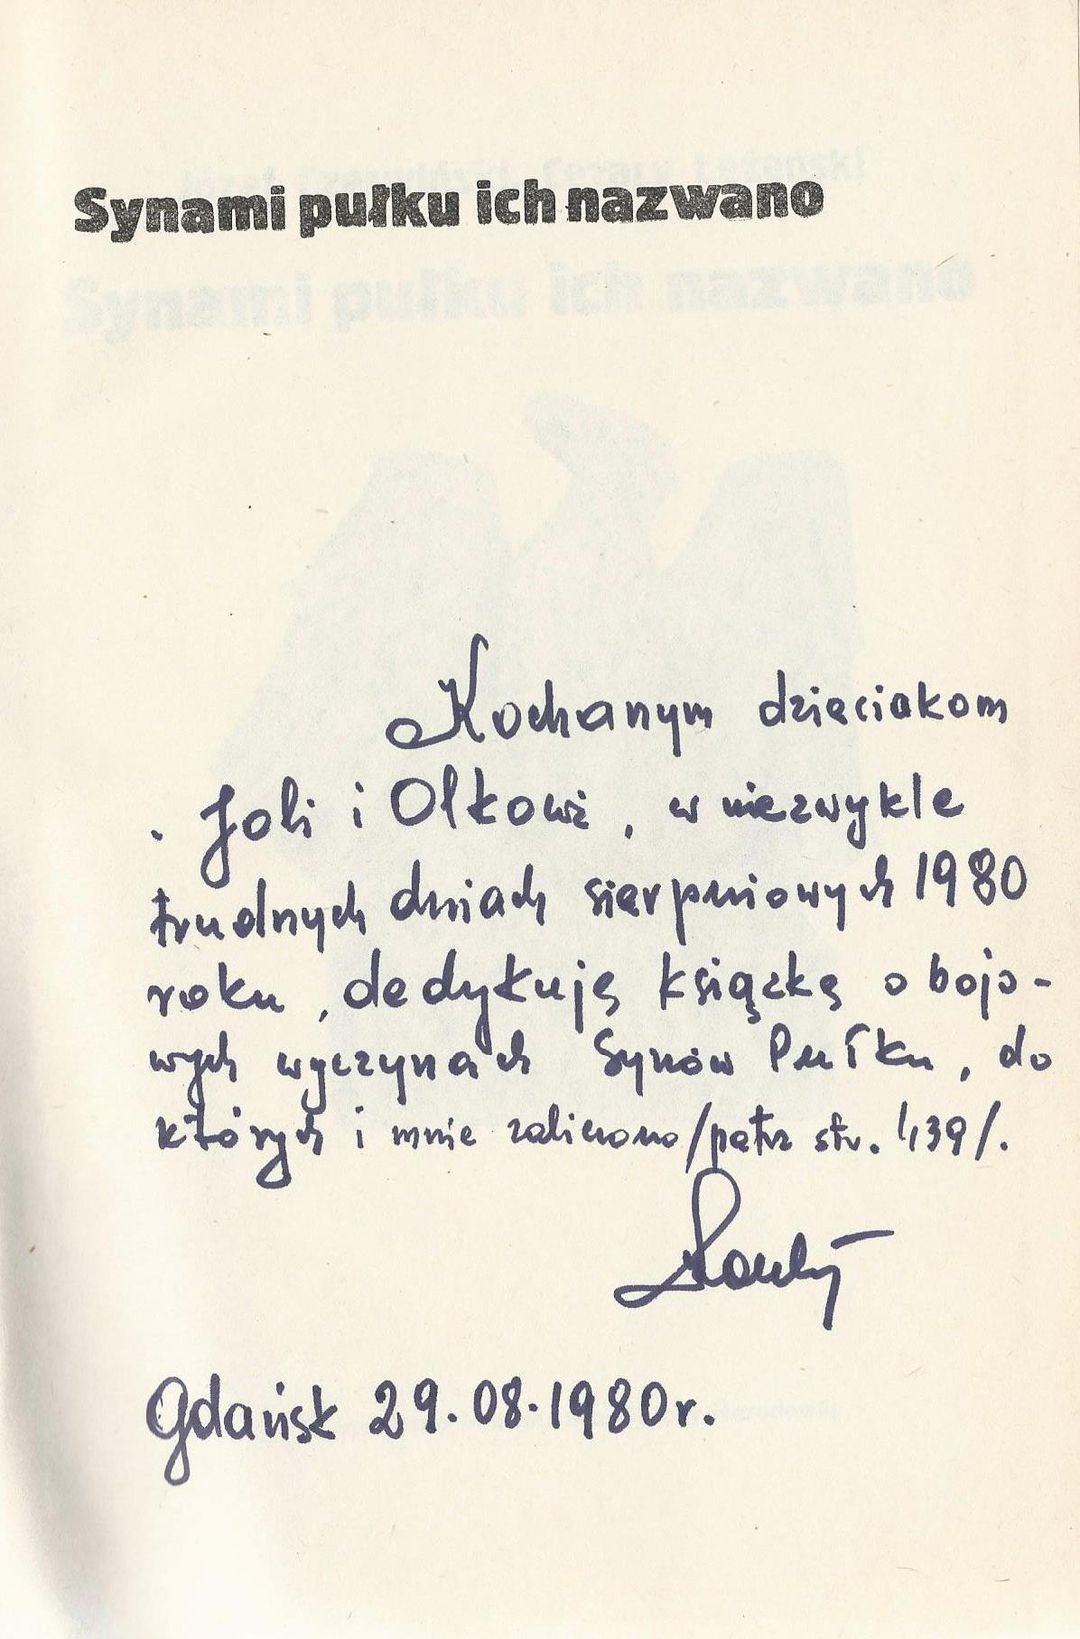 Synami pułku ich nazwano
Synami pułku ich nazwano
Kochanym dzieciakom
Joli i Olkowi, w niezwykle
trudnych dniach sierpniowych 1980
roku, dedykuję książkę o bojo-
wych wyczynach Synów Pułku, do
których i mnie zaliczono /patrz str. 139/.
Gdańsk 29.08.1980r.